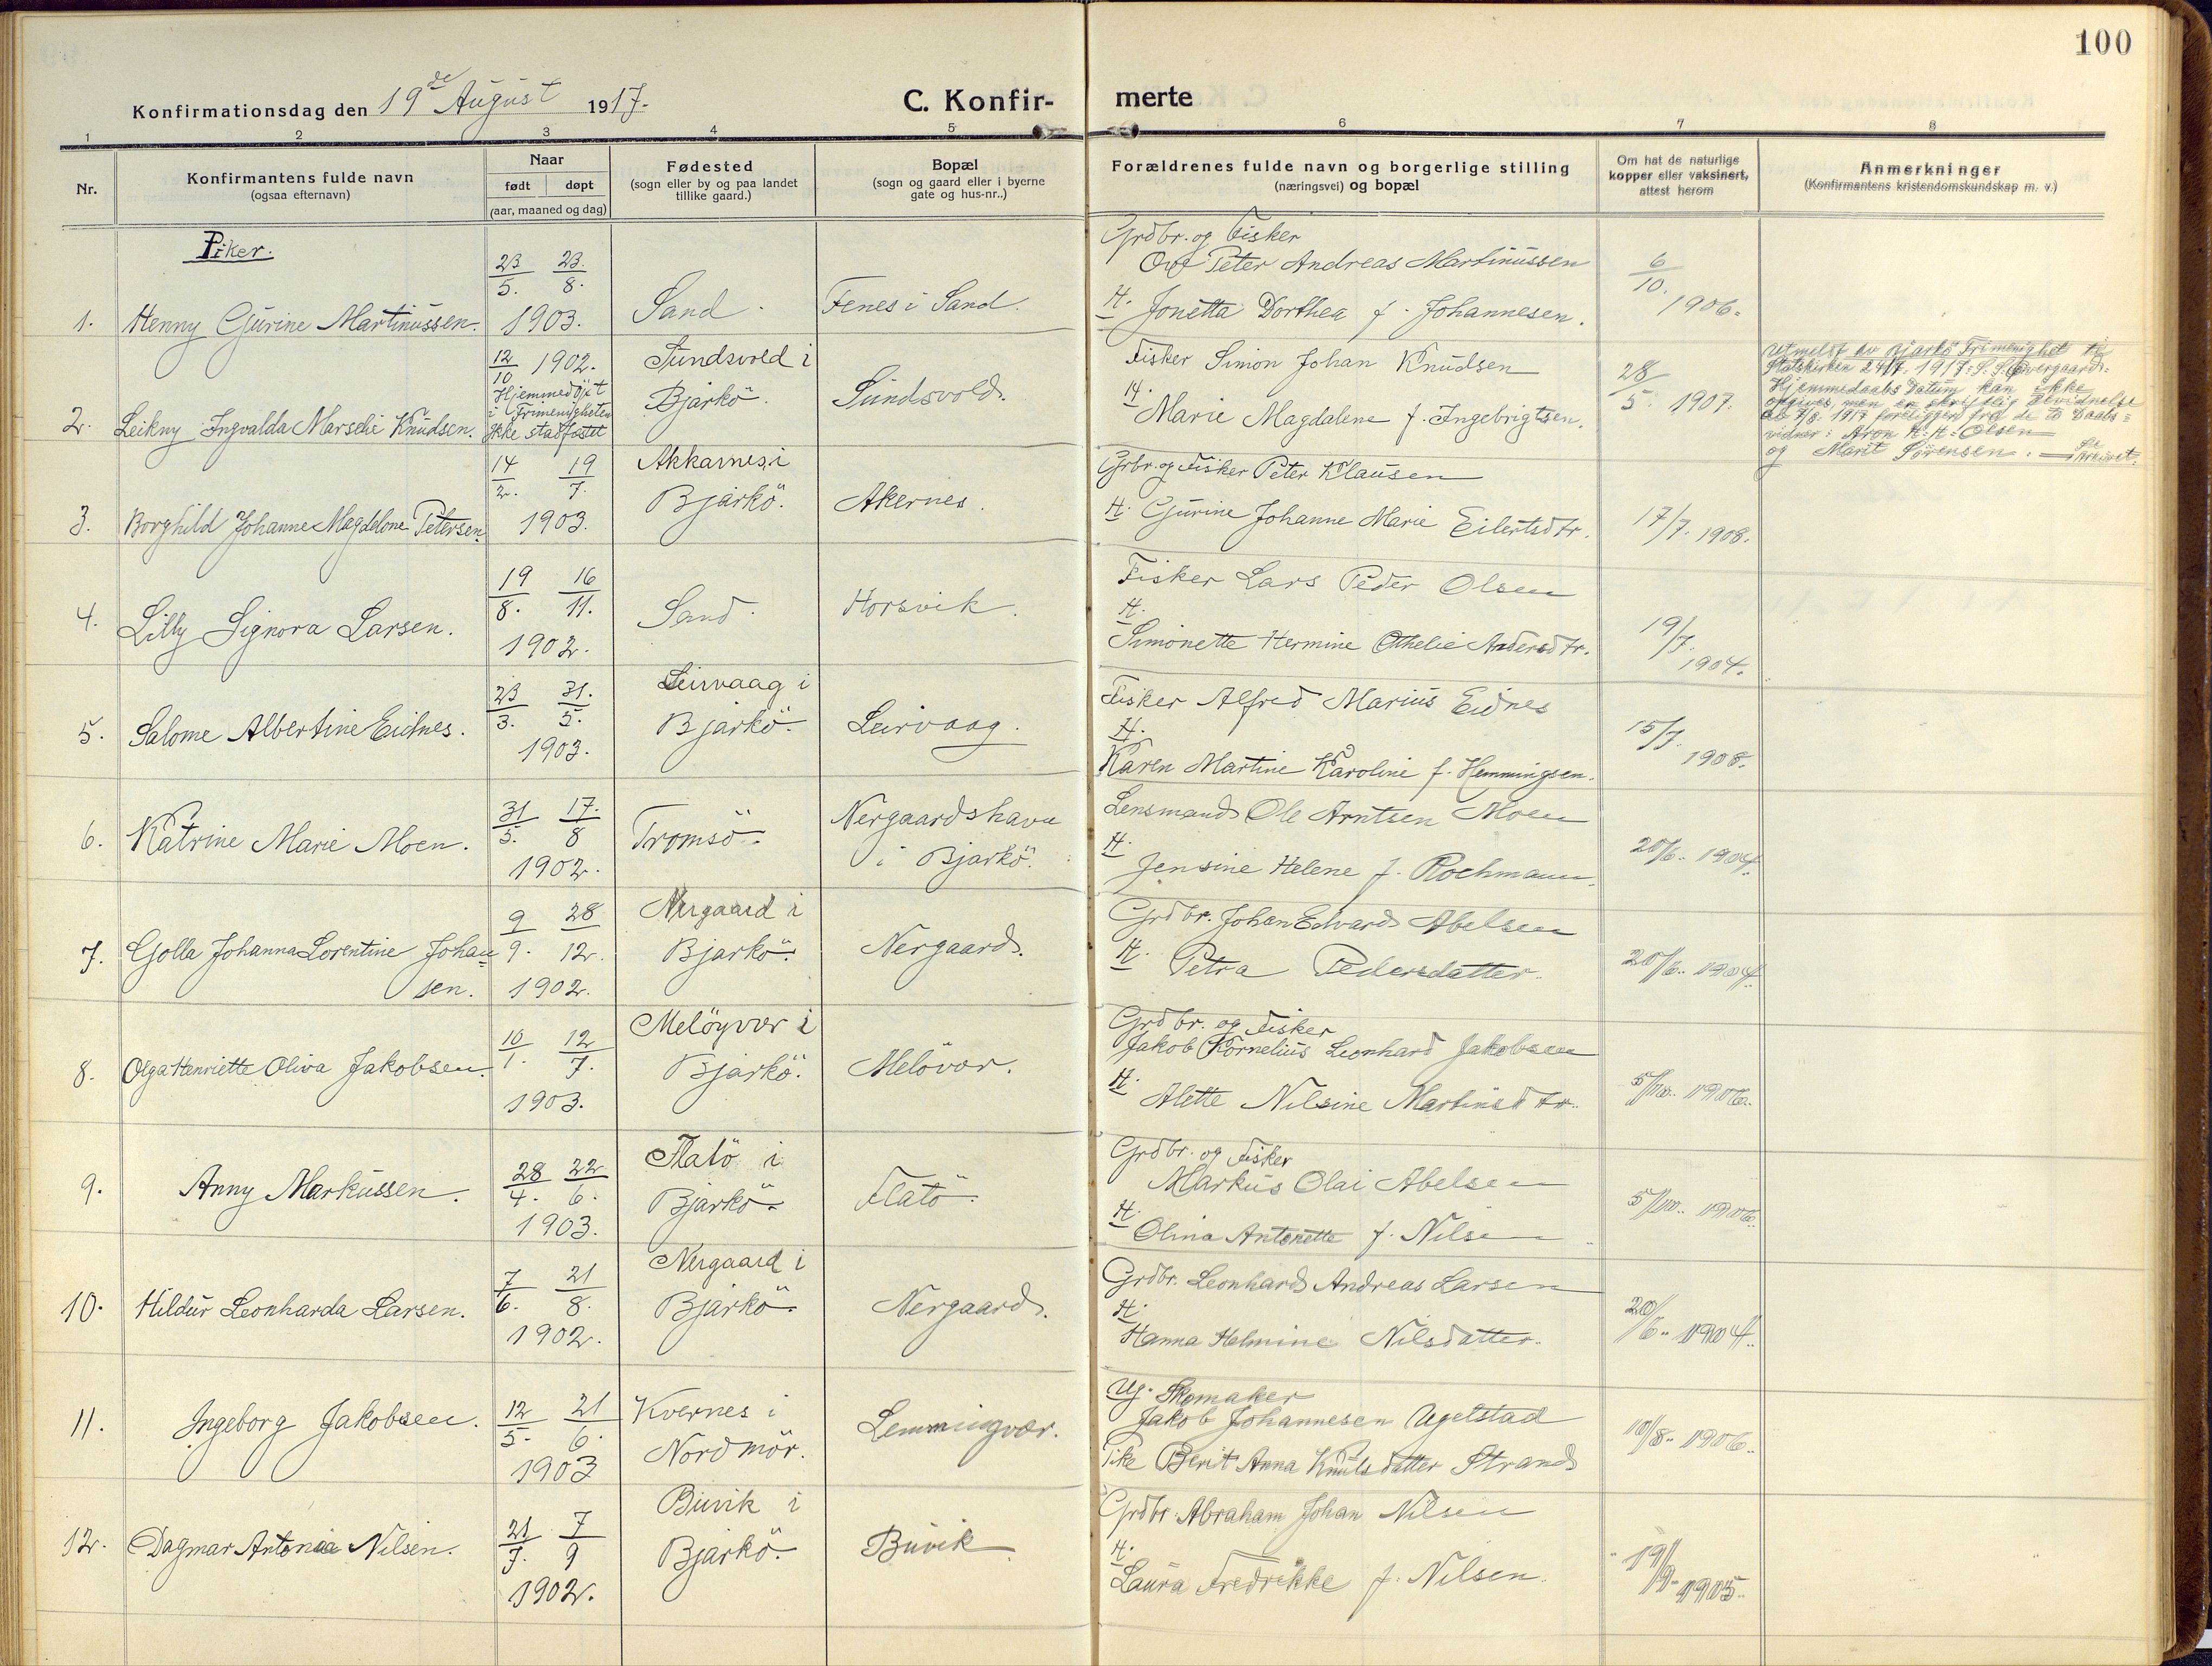 100
Konfirmationsdag den 19de August 1917.
C. Konfir- merte
1 2 3 4 5 6 7 8
Nr.
Konfirmantens fulde navn
(ogsaa efternavn)
Naar
født døpt
(aar, maaned og dag)
Fødested
(sogn eller by og paa landet
tillike gaard.)
Bopæl
(sogn og gaard eller i byerne
gate og hus-nr..)
Forældrenes fulde navn og borgerlige stilling
(næringsvei) og bopæl
Om hat de naturlige
kopper eller vaksinert,
attest herom
Anmerkninger
(Konfirmantens kristendomskundskap m. v.)
Piker.
1. Henny Gurine Martinussen.
23/5. 23./8.
1903.
Sand.
Fenes i Sand.
Grdbr. og Fisker
Ove Peter Andreas Martinussen
H. Jonetta Dorthea f. Johannesen.
6/10. 1906.
2. Leikny Ingvalda Marselie Knudsen.
12/10 1902.
Hjemmedöpt
i Frimenigheten
Ikke stadfæstet
Sundsvold i
Bjarkö.
Sundsvold.
Fisker Simon Johan Knudsen
H.
Marie Magdalene f. Ingebrigtsen.
28/5. 1907.
Utmeldt av Bjarkö Frimenighet til
Statskirken 24/7. 1917: S. S. Overgaard:
Hjemmedaabs Datum kan ikke
opgives, men en skriftlig Bevidnelse
av 7/8. 1917 foreligger fra de to Daabs=
vidner: Aron H: H: Olsen
og Marit Sörensen.
3. Borghild Johanne Magdelone Petersen.
14/2. 19/7.
1903.
Akkarnes i
Bjarkö.
Akernes.
Grbr. og Fisker Peter Klausen
H. Gurine Johanne Marie Eilertsdtr.
17/7. 1908.
4. Lilly Signora Larsen.
19/8. 16/11.
1902.
Sand.
Horsvik.
Fisker Lars Peder Olsen
H.
Simonette Hermine Othelie Andersdtr.
19/7. 1904.
5. Salome Albertine Eidnes.
23/3. 31./5.
1903.
Leirvaag i
Bjarkö.
Leirvaag.
Fisker Alfred Marius Eidnes
H.
Karen Martine Karoline f. Hemmingsen.
15/7. 1908.
6. Katrine Marie Moen.
31/5. 17./8
1902.
Tromsö.
Nergaardshavn
i Bjarkö.
Lensmand Ole Arntsen Moen
H.
Jensine Helene f. Rochmann.
20/6. 1904.
7. Golla Johanna Lorentine Johan=
sen.
9/9. 28/12.
1902.
Nergaard i
Bjarkö.
Nergaard.
Grdbr. Johan Edvard Abelsen
H. Petra Pedersdatter.
20/6. 1904.
8. Olga Henriette Oliva Jakobsen.
10/1. 12/7.
1903.
Melöyvær i
Bjarkö.
Melövær.
Grdbr. og Fisker
Jakob Kornelius Leonhard Jakobsen
H. Alette Nilsine Martinsdtr.
5/10. 1906.
9. Anny Markussen.
28/4. 22/6.
1903.
Flatö i
Bjarkö.
Flatö.
Grdbr. og Fisker
Markus Olai Abelsen
H. Olina Antonette f. Nilsen
5/10. 1906.
10. Hildur Leonharda Larsen.
7/6. 21/8.
1902.
Nergaard i
Bjarkö.
Nergaard.
Grdbr. Leonhard Andreas Larsen
H.
Hanna Helmine Nilsdatter.
20/6. 1904.
11. Ingeborg Jakobsen.
12/5. 21/6.
1903
Kvernes i
Nordmör.
Lemmingvær.
Ug. Skomaker
Jakob Johannesen Ugelstad
Pike Berit Anna Knutsdatter Strand
10/8. 1906.
12. Dagmar Antonia Nilsen.
21/7. 7/9
1902.
Buvik i
Bjarkö.
Buvik.
Grdbr. Abraham Johan Nilsen
H.
Laura Fredrikke f. Nilsen.
19/9. 1905.